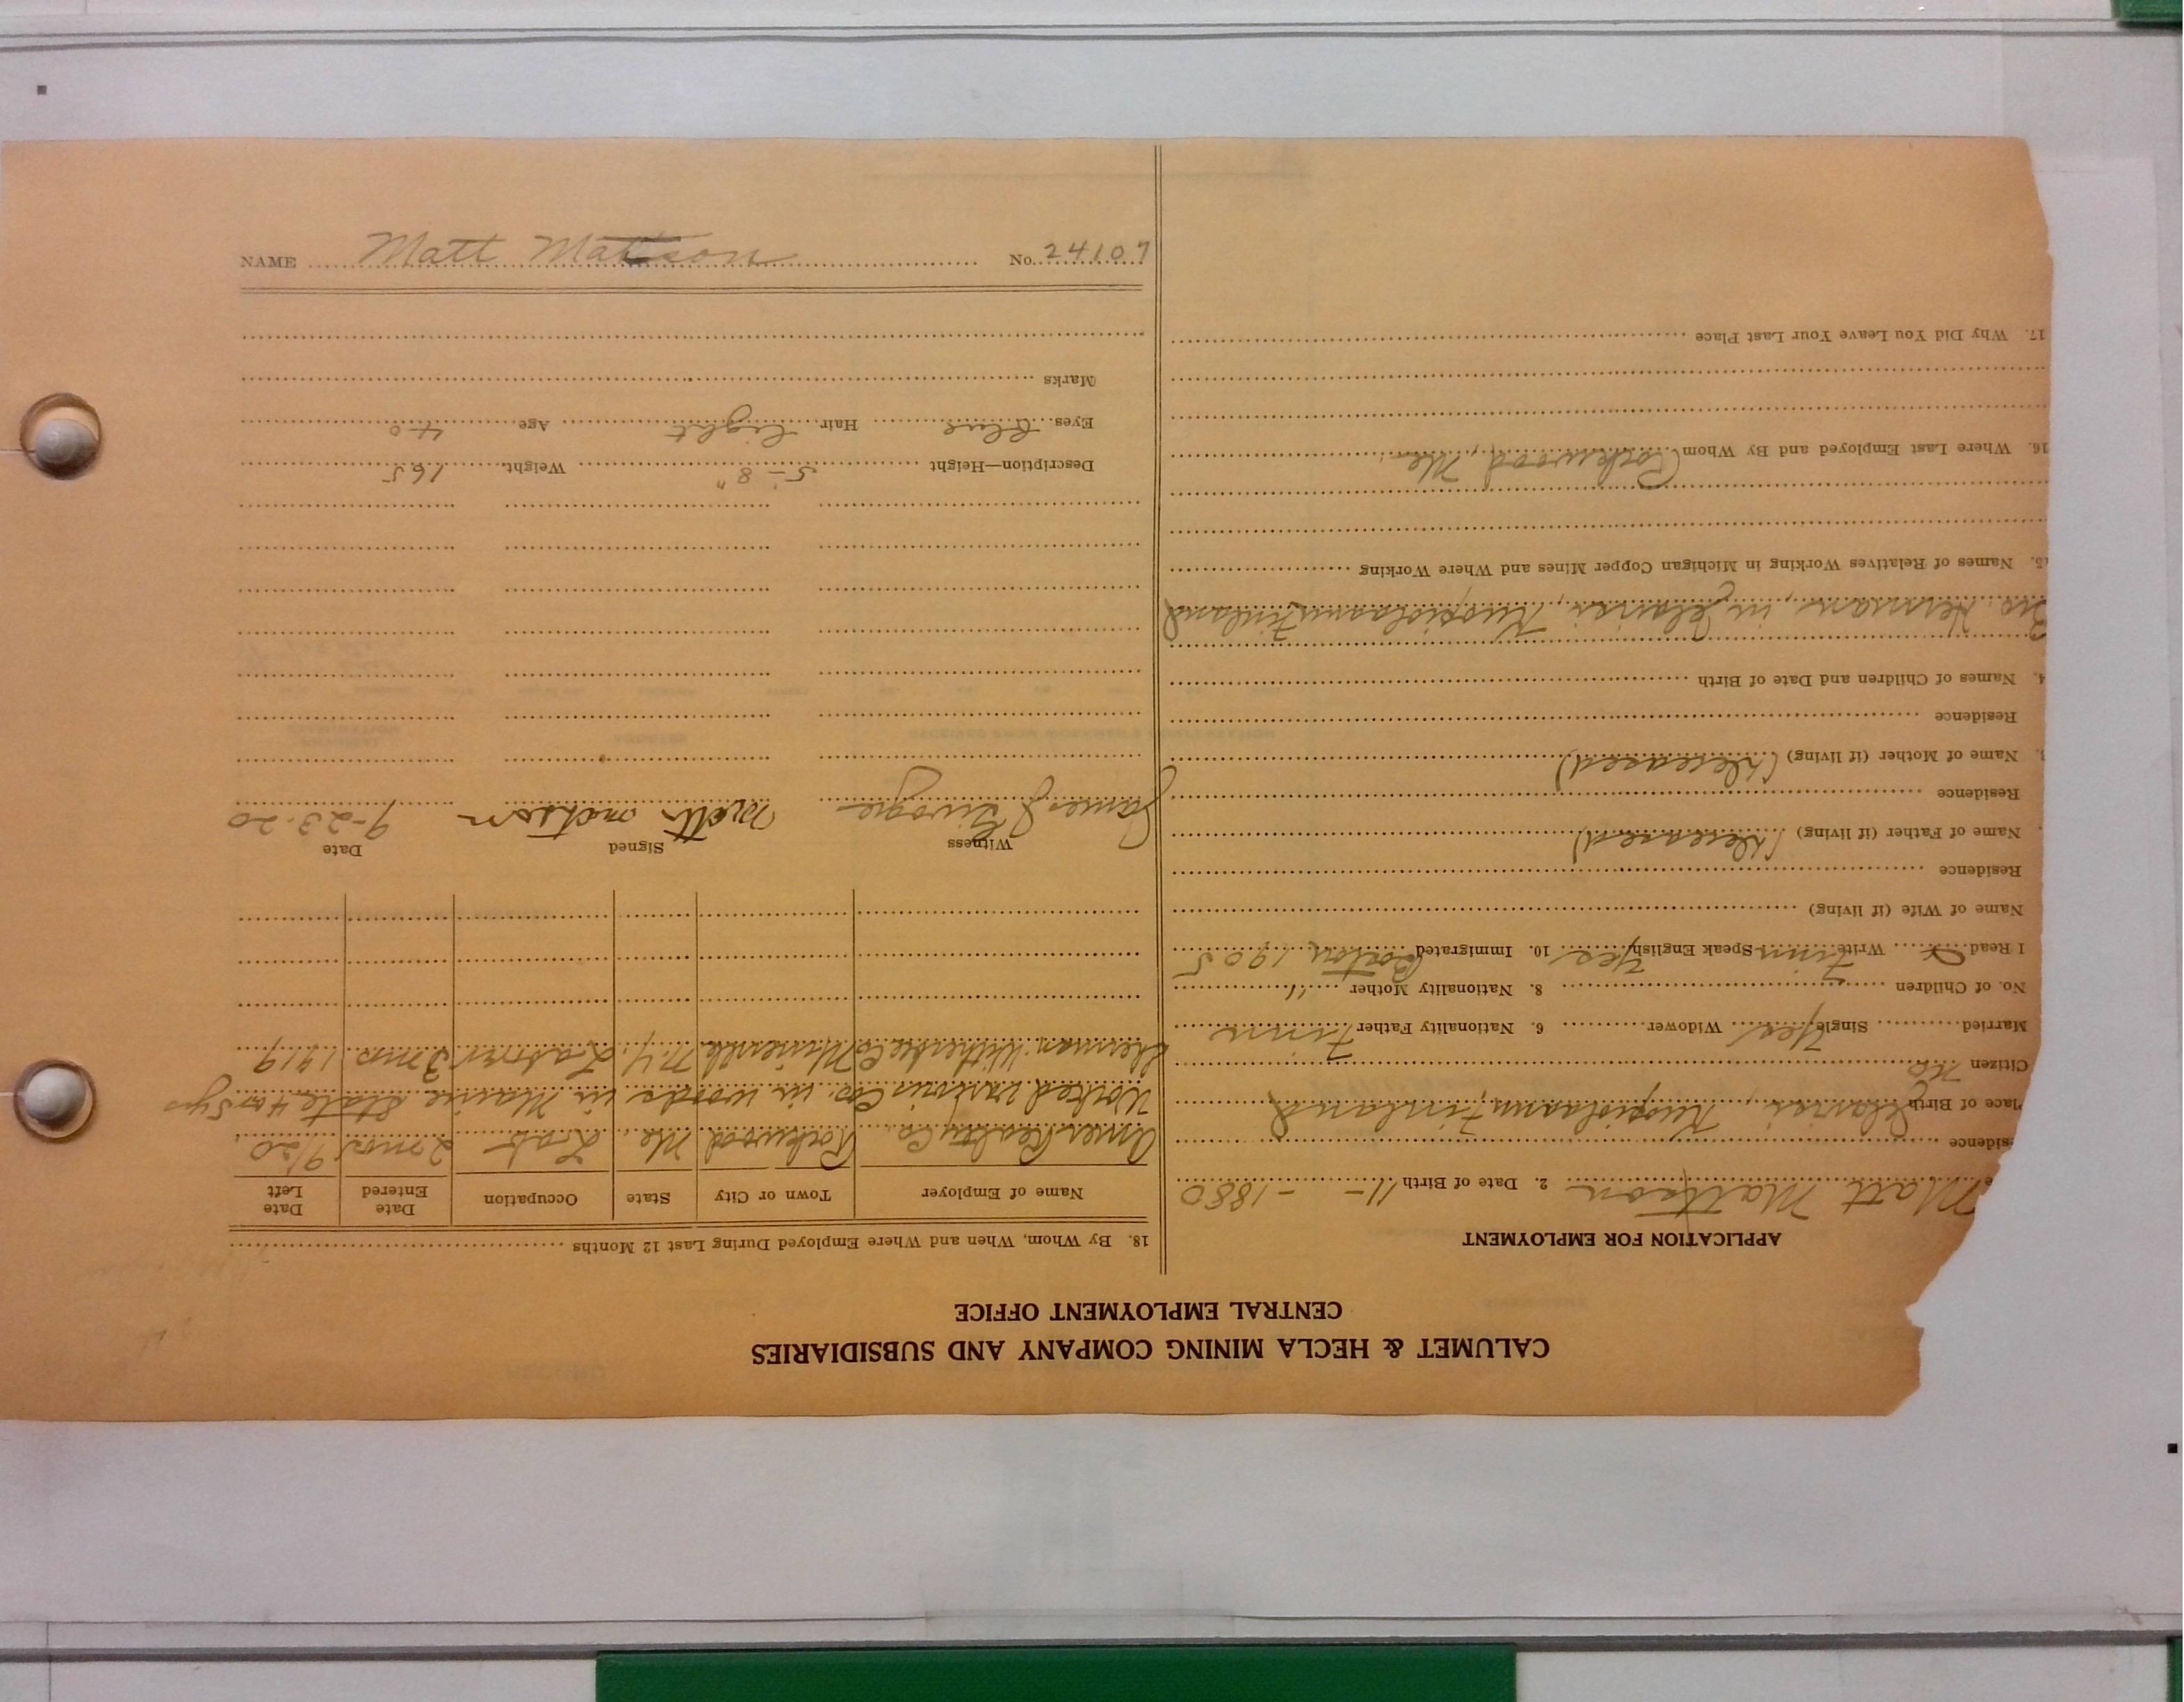 CALUMET & HECLA MINING COMPANY AND SUBSIDIARIES
CENTRAL EMPLOYMENT OFFICE
APPLICATION FOR EMPLOYMENT
e Matt Mattson 2. Date of Birth 11 - - 1880
sidence
Place of Birth Kuopiolaani, Finland
Citizen No
Married Single Yes Widower 6. Nationality Father Finn
No. of Children 8. Nationality Mother "
I Read Write Finn Speak English Yes 10. Immigrated Boston 1905
Name of Wife (if living)
Residence
Name of Father (if living) (deceased)
Residence
Name of Mother (if living) (deceased)
Residence
4. Names of Children and Date of Birth
Bro. Herman, in Kuopiolaani Finland
15. Names of Relatives Working in Michigan Copper Mines and Where Working
16. Where Last Employed and By Whom Rockwood, Me.
17. Why Did You Leave Your Last Place
18. By Whom, When and Where Employed During Last 12 Months
Name of Employer Town or City State Occupation Date Entered Date Left
Amer Realty Co. Rockwood Me. Lab 2 mos 9/20
Worked various Cos. in woods in Maine State 4 or 5 yrs
Witherbee Co Mineville N.Y. 3 mos 1919
Witness Signed Date
James J Matt matson 9-23-20
Description—Height 5 - 8" Weight 165
Eyes Blue Hair Light Age 40
Marks
NAME Matt Mattson No. 24107